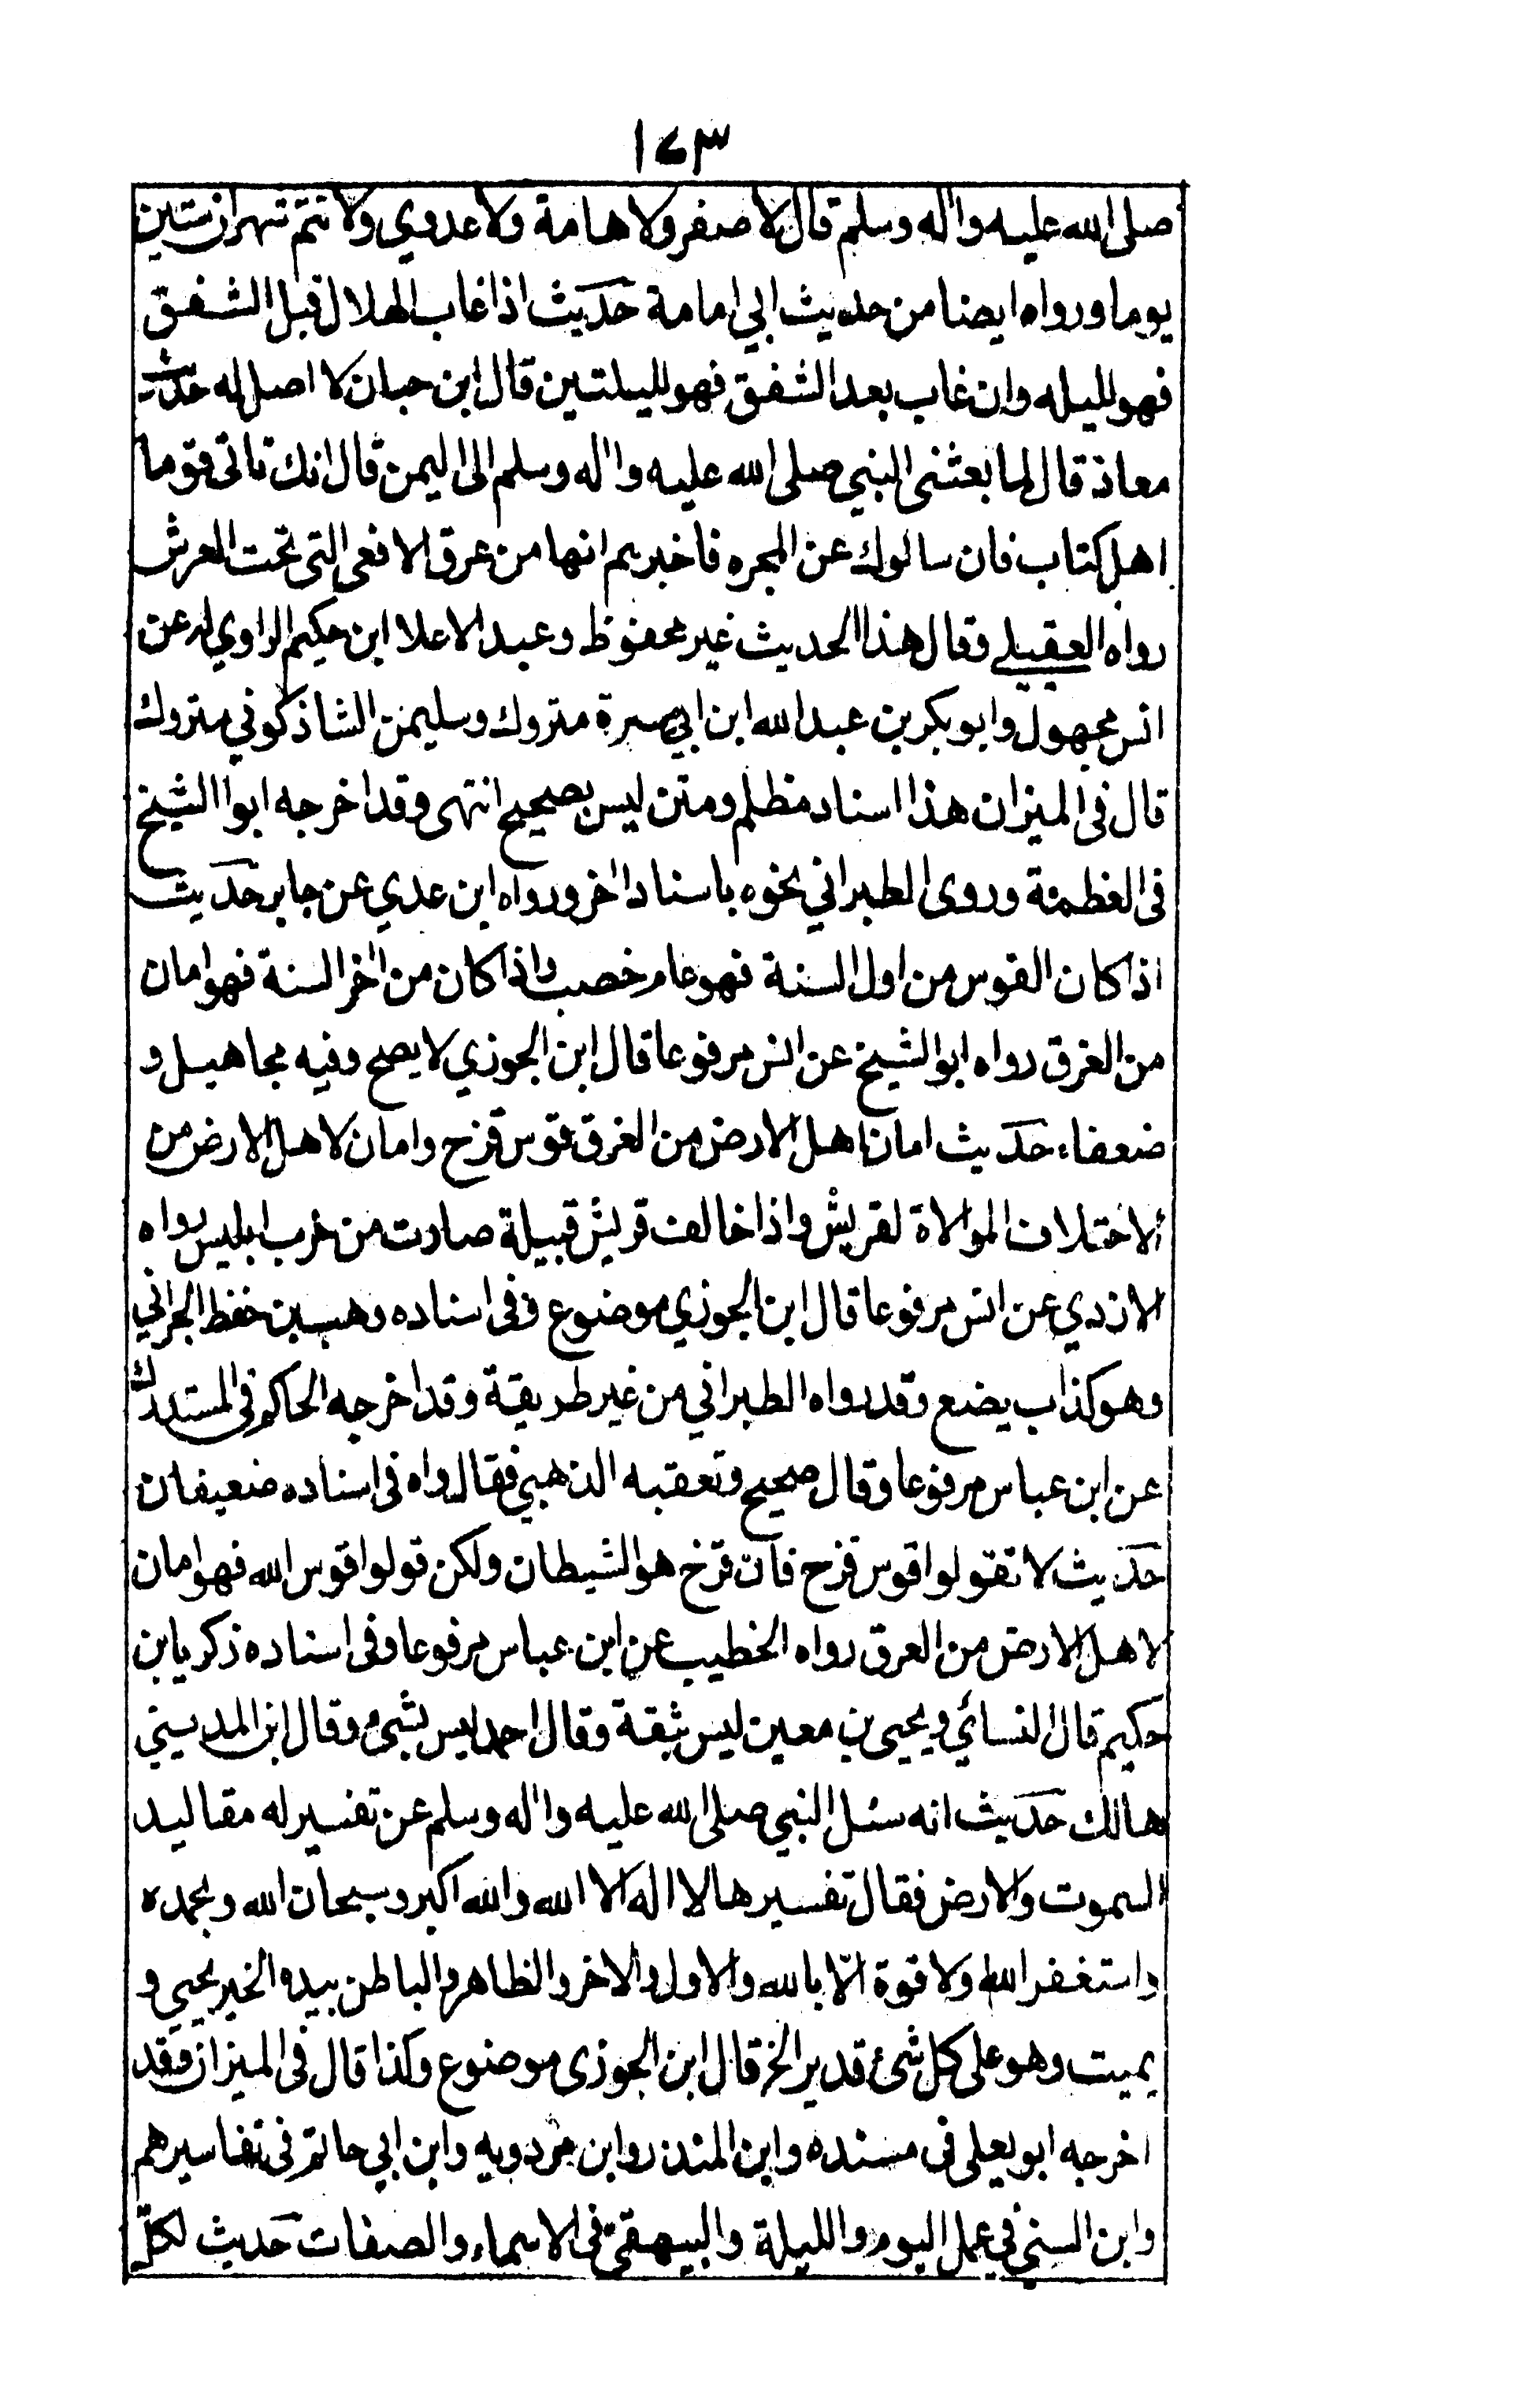 ١٤٣
صلى الله عليه واٰله وسلم قال لا صفر ولا هامة ولا عدوي ولا تتم شهران ستين
يوما ورواه ايضا من حديث ابي امامة حديث اذا غاب الهلال قبل الشفق
فهو لليله وان غاب بعد الشفق فهو لليلتين قال ابن حبان لا اصل له حديث
معاذ قال لما بعثنى النبي صلى الله عليه واٰله وسلم الى اليمن قال انك تاتى قوما
اهل كتاب فان سالوك عن المجره فاخبرهم انها من عرق الافعى التى تحت العرش
رواه العقيلے وقال هذا الحديث غير محفوظ وعبد الاعلا ابن حكيم الراوي له عن
انس مجهول وابو بكر بن عبد الله ابن ابي سبرة متروك وسليمن الشاذكوني متروك
قال فى الميزان هذا اسناد مظلم ومتن ليس بصحيح انتهى وقد اخرجه ابوا الشيخ
فى العظمة وروى الطبراني نحوه باسناد اٰخر ورواه ابن عدي عن جابر حديث
اذا كان القوس من اول السنة فهو عام خصب واذا كان من اٰخر السنة فهو امان
من الغرق رواه ابو الشيخ عن انس مرفوعا قال ابن الجوزي لا يصح وفيه مجاهيل و
ضعفاء حديث امان اهل الارض من الغرق قوس قزح وامان لاهل الارض من
الاختلاف الموالاة لقريش واذا خالف قريش قبيلة صارت من حزب ابليس رواه
الازدي عن انس مرفوعا قال ابن الجوزي موضوع وفى اسناده وهب بن حفظ الحراني
وهو كذاب يضع وقد رواه الطبراني من غير طريقة وقد اخرجه الحاكم فى المستدرك
عن ابن عباس مرفوعا وقال صحيح وتعقبه الذهبي فقال واه فى اسناده ضعيفان
حديث لا تقولوا قوس قزح فان قزح هو الشيطان ولكن قولوا قوس الله فهو امان
لاهل الارض من العرق رواه الخطيب عن ابن عباس مرفوعا وفى اسناده زكريا بن
حكيم قال النسائي ويحيى بن معين ليس بثقة وقال احمد ليس بشىء وقال ابن المديني
هالك حديث انه سئل النبي صلى الله عليه واٰله وسلم عن تفسير له مقاليد
السموت والارض فقال تفسيرها لا اله الا الله والله اكبر وسبحان الله وبحمده
واستغفر الله ولا قوة الّا بالله والاول والاخر والظاهر والباطن بيده الخير يحيي و
يميت وهو على كل شئ قدير الخ قال ابن الجوزى موضوع وكذا قال فى الميزان وقد
اخرجه ابو يعلى فى مسنده وابن المنذر وابن مردويه وابن ابي حاتم فى تفاسيرهم
وابن السني في عمل اليوم والليلة والبيهقيّ فى الاسماء والصفات حديث لكلّ